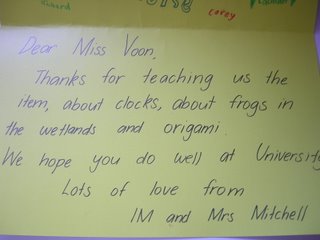 Richard
Corey
Dear Miss Voon,
Thanks for teaching us the
item, about clocks, about frogs in
the wetlands and origami.
We hope you do well at University
Lots of love from
IM and Mrs Mitchell